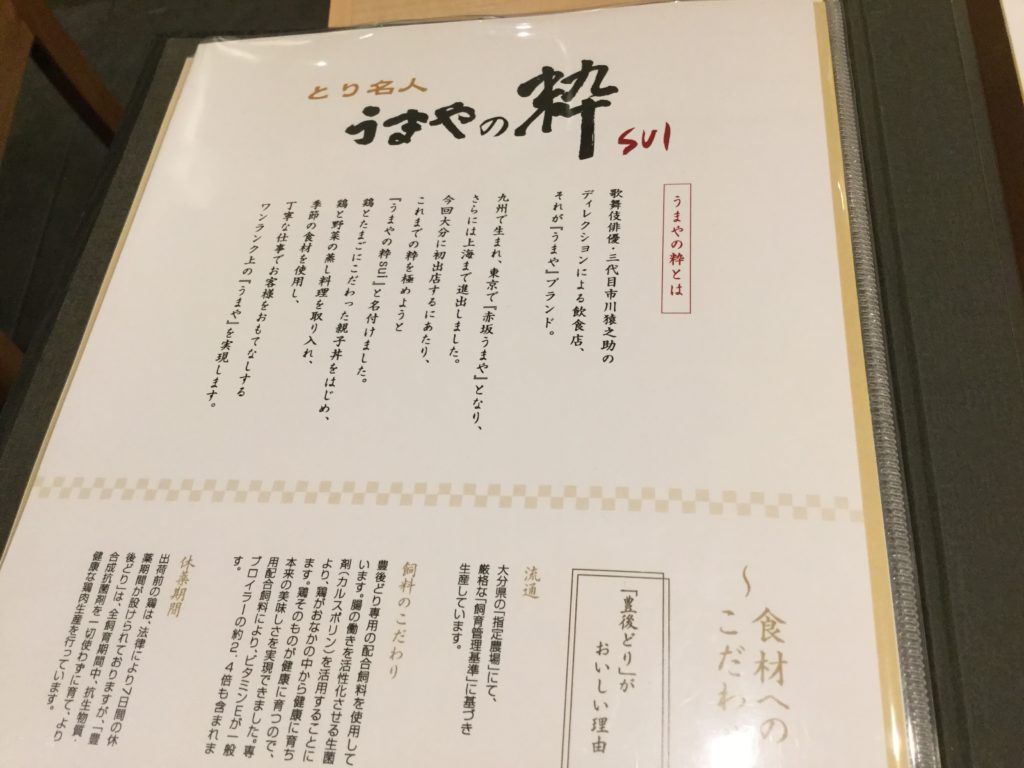 とり名人
うまやの粋
sui
うまやの粋とは
歌舞伎俳優・三代目市川猿之助の
ディレクションによる飲食店、
それが『うまや』ブランド。
九州で生まれ、東京で『赤坂うまや』となり、
さらには上海まで進出しました。
今回大分に初出店するにあたり、
これまでの粋を極めようと
『うまやの粋sui』と名付けました。
鶏とたまごにこだわった親子丼をはじめ、
鶏と野菜の蒸し料理を取り入れ、
季節の食材を使用し、
丁寧な仕事でお客様をおもてなしする
ワンランク上の『うまや』を実現します。
〜食材への
こだわ
「豊後どり」が
おいしい理由
流通
大分県の「指定農場」にて、
厳格な「飼育管理基準」に基づき
生産しています。
飼料のこだわり
豊後どり専用の配合飼料を使用して
います。腸の働きを活性化させる生菌
剤(カルスポリン)を活用することに
より、鶏がおなかの中から健康に育ち
ます。鶏そのものが健康に育つので、
本来の美味しさを実現できました。専
用配合飼料により、ビタミンEが一般
ブロイラーの約2、4倍も含まれま
休薬期間
出荷前の鶏は、法律により7日間の休
薬期間が設けられておりますが、「豊
後どり」は、全飼育期間中、抗生物質・
合成抗菌剤を一切使わずに育て、より
健康な鶏肉生産を行っています。